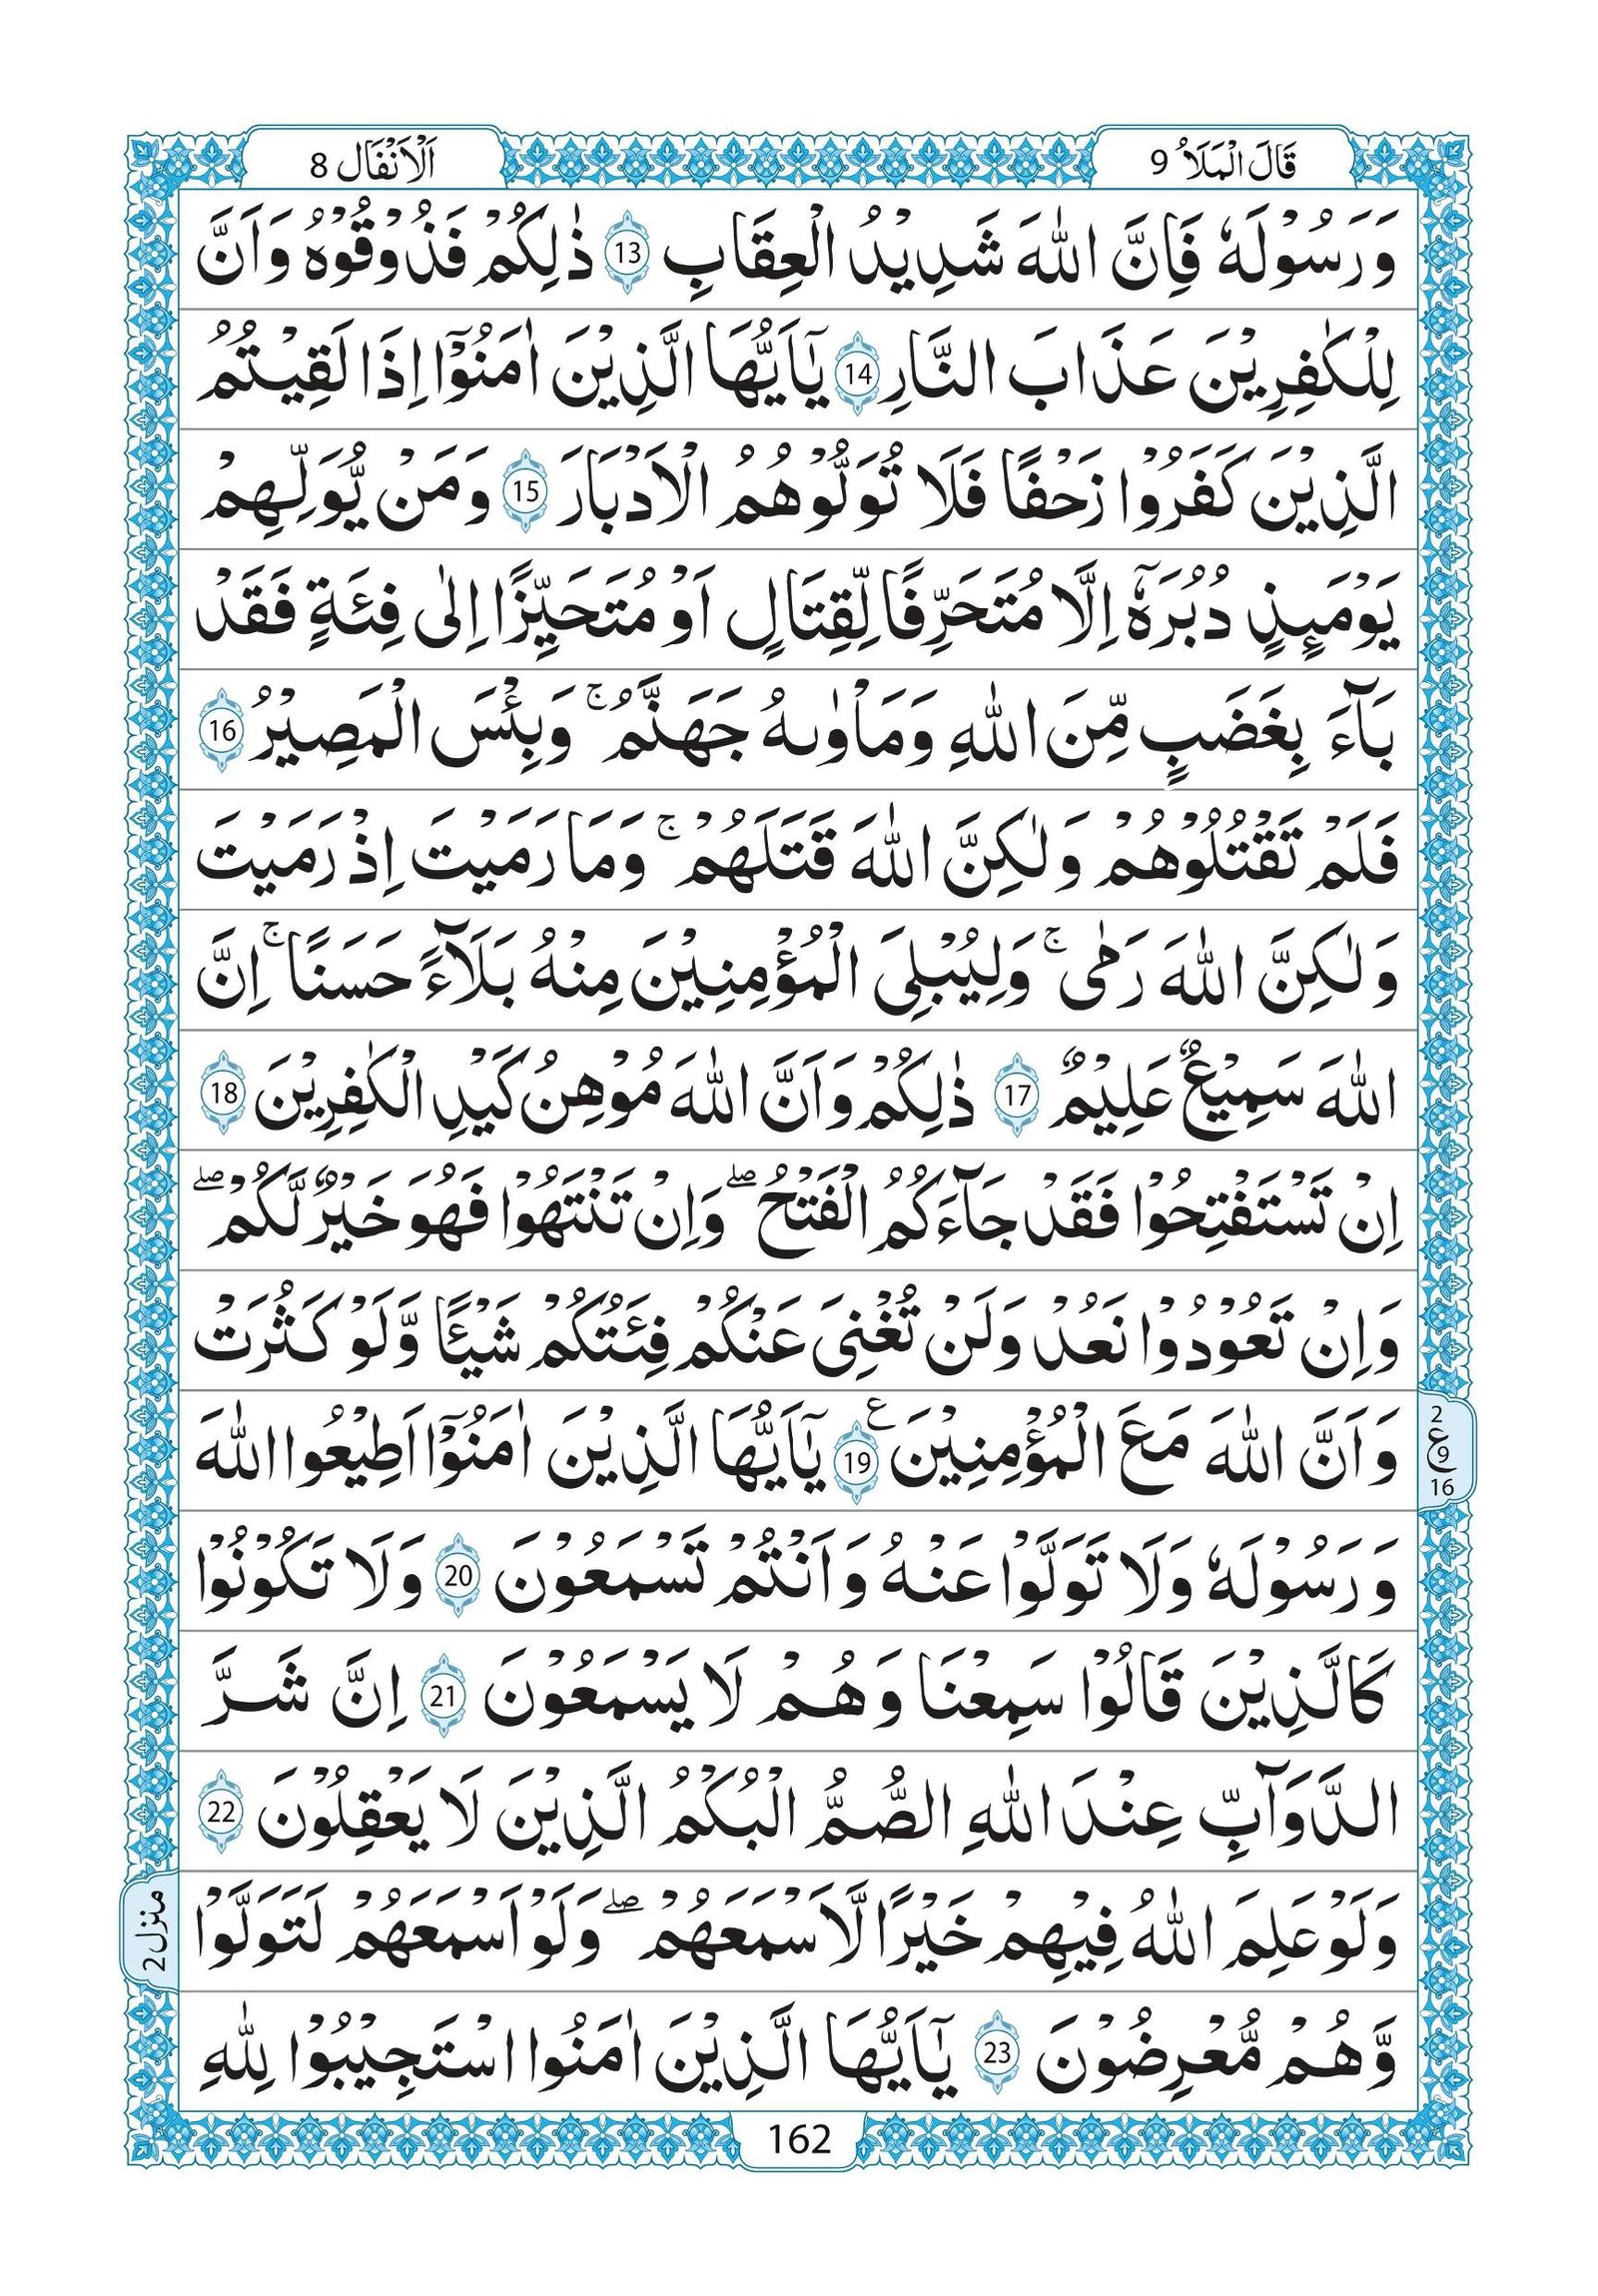 قَالَ الْمَلَاُ 9
اَلْاَنْفَال 8
وَرَسُوْلَهٗ فَاِنَّ اللّٰهَ شَدِيْدُ الْعِقَابِ 13 ذٰلِكُمْ فَذُوْقُوْهُ وَاَنَّ
لِلْكٰفِرِيْنَ عَذَابَ النَّارِ 14 يٰۤاَيُّهَا الَّذِيْنَ اٰمَنُوْۤا اِذَا لَقِيْتُمُ
الَّذِيْنَ كَفَرُوْا زَحْفًا فَلَا تُوَلُّوْهُمُ الْاَدْبَارَ 15 وَمَنْ يُّوَلِّهِمْ
يَوْمَىِٕذٍ دُبُرَهٗۤ اِلَّا مُتَحَرِّفًا لِّقِتَالٍ اَوْ مُتَحَيِّزًا اِلٰى فِئَةٍ فَقَدْ
بَآءَ بِغَضَبٍ مِّنَ اللّٰهِ وَمَاْوٰىهُ جَهَنَّمُ ۚ وَبِئْسَ الْمَصِيْرُ 16
فَلَمْ تَقْتُلُوْهُمْ وَلٰكِنَّ اللّٰهَ قَتَلَهُمْ ۚ وَمَا رَمَيْتَ اِذْ رَمَيْتَ
وَلٰكِنَّ اللّٰهَ رَمٰى ۚ وَلِيُبْلِىَ الْمُؤْمِنِيْنَ مِنْهُ بَلَآءً حَسَنًا ۚ اِنَّ
اللّٰهَ سَمِيْعٌ عَلِيْمٌ 17 ذٰلِكُمْ وَاَنَّ اللّٰهَ مُوْهِنُ كَيْدِ الْكٰفِرِيْنَ 18
اِنْ تَسْتَفْتِحُوْا فَقَدْ جَآءَكُمُ الْفَتْحُ ۖ وَاِنْ تَنْتَهُوْا فَهُوَ خَيْرٌ لَّكُمْ ۖ
وَاِنْ تَعُوْدُوْا نَعُدْ وَلَنْ تُغْنِىَ عَنْكُمْ فِئَتُكُمْ شَيْـًٔا وَّلَوْ كَثُرَتْ
وَاَنَّ اللّٰهَ مَعَ الْمُؤْمِنِيْنَ ع 19 يٰۤاَيُّهَا الَّذِيْنَ اٰمَنُوْۤا اَطِيْعُوا اللّٰهَ
2
ع 9
16
وَرَسُوْلَهٗ وَلَا تَوَلَّوْا عَنْهُ وَاَنْتُمْ تَسْمَعُوْنَ 20 وَلَا تَكُوْنُوْا
كَالَّذِيْنَ قَالُوْا سَمِعْنَا وَهُمْ لَا يَسْمَعُوْنَ 21 اِنَّ شَرَّ
الدَّوَآبِّ عِنْدَ اللّٰهِ الصُّمُّ الْبُكْمُ الَّذِيْنَ لَا يَعْقِلُوْنَ 22
وَلَوْ عَلِمَ اللّٰهُ فِيْهِمْ خَيْرًا لَّاَسْمَعَهُمْ ۖ وَلَوْ اَسْمَعَهُمْ لَتَوَلَّوْا
منزل 2
وَّهُمْ مُّعْرِضُوْنَ 23 يٰۤاَيُّهَا الَّذِيْنَ اٰمَنُوا اسْتَجِيْبُوْا لِلّٰهِ
162